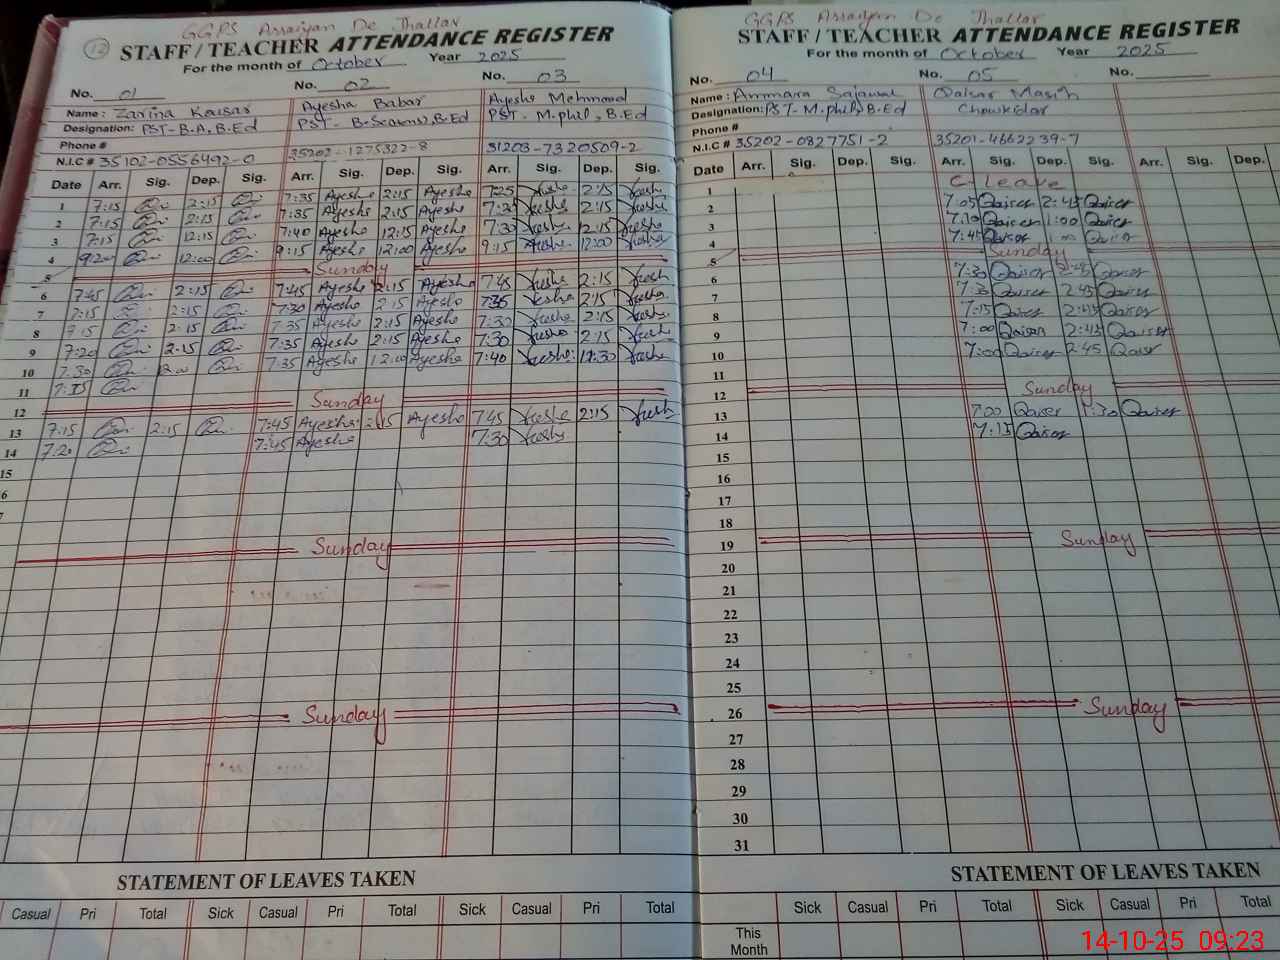 GGPS Assaiyan De Thallar
12
STAFF / TEACHER ATTENDANCE REGISTER
For the month of October Year 2025
No. 01 No. 02 No. 03
Name : Zarina Kausar Ayesha Babar Ayesha Mehmood
Designation: PST-B.A, B.Ed PST- B.Sc, B.Ed PST- M.phil, B.Ed
Phone #
N.I.C # 35102-0556492-0 35202-1275322-8 31203-7320509-2
Date Arr. Sig. Dep. Sig. Arr. Sig. Dep. Sig. Arr. Sig. Dep. Sig.
1 7:15 2:15 7:35 Ayesha 2:15 Ayesha 7:25 2:15
2 7:15 2:15 7:35 Ayesha 2:15 Ayesha 2:15
3 7:15 12:15 7:40 Ayesha 12:15 Ayesha 7:30 12:15
4 9:20 12:00 9:15 Ayesha 12:00 Ayesha 9:15 12:00
5 Sunday
6 7:45 2:15 7:45 Ayesha 2:15 Ayesha 7:45 2:15
7 7:15 2:15 7:30 Ayesha 2:15 Ayesha 7:35 2:15
8 7:15 2:15 7:35 Ayesha 2:15 Ayesha 7:30 2:15
9 7:20 2:15 7:35 Ayesha 2:15 Ayesha 7:30 2:15
10 7:30 7:35 Ayesha 12:00 Ayesha 7:40 12:30
11 7:35
12 Sunday
13 7:15 2:15 7:45 Ayesha 2:15 Ayesha 7:45 2:15
14 7:20 7:45 Ayesha 7:30
15
6
7
Sunday
Sunday
STATEMENT OF LEAVES TAKEN
Casual Pri Total Sick Casual Pri Total Sick Casual Pri Total
GGPS Assaiyan De Thallar
STAFF / TEACHER ATTENDANCE REGISTER
For the month of October Year 2025
No. 04 No. 05 No.
Name : Ammara Sajawal Qaisar Masih
Designation: PST-M.phil, B.Ed Chowkidar
Phone #
N.I.C # 35202-0827751-2 35201-4662239-7
Date Arr. Sig. Dep. Sig. Arr. Sig. Dep. Sig. Arr. Sig. Dep.
1 C-Leave
2 7:05 Qaiser 2:45 Qaiser
3 7:10 Qaiser 1:00 Qaiser
4 7:45 Qaiser Qaiser
5 Sunday
6 7:30 Qaiser 2:45 Qaiser
7 7:30 Qaiser 2:45 Qaiser
8 7:15 Qaiser 2:45 Qaiser
9 7:00 Qaiser 2:45 Qaiser
10 7:00 Qaiser 2:45 Qaiser
11
12 Sunday
13 7:00 Qaiser 1:30 Qaiser
14 7:15 Qaiser
15
16
17
18
19 Sunday
20
21
22
23
24
25
26 Sunday
27
28
29
30
31
STATEMENT OF LEAVES TAKEN
Sick Casual Pri Total Sick Casual Pri Total
This Month
14-10-25 09:23